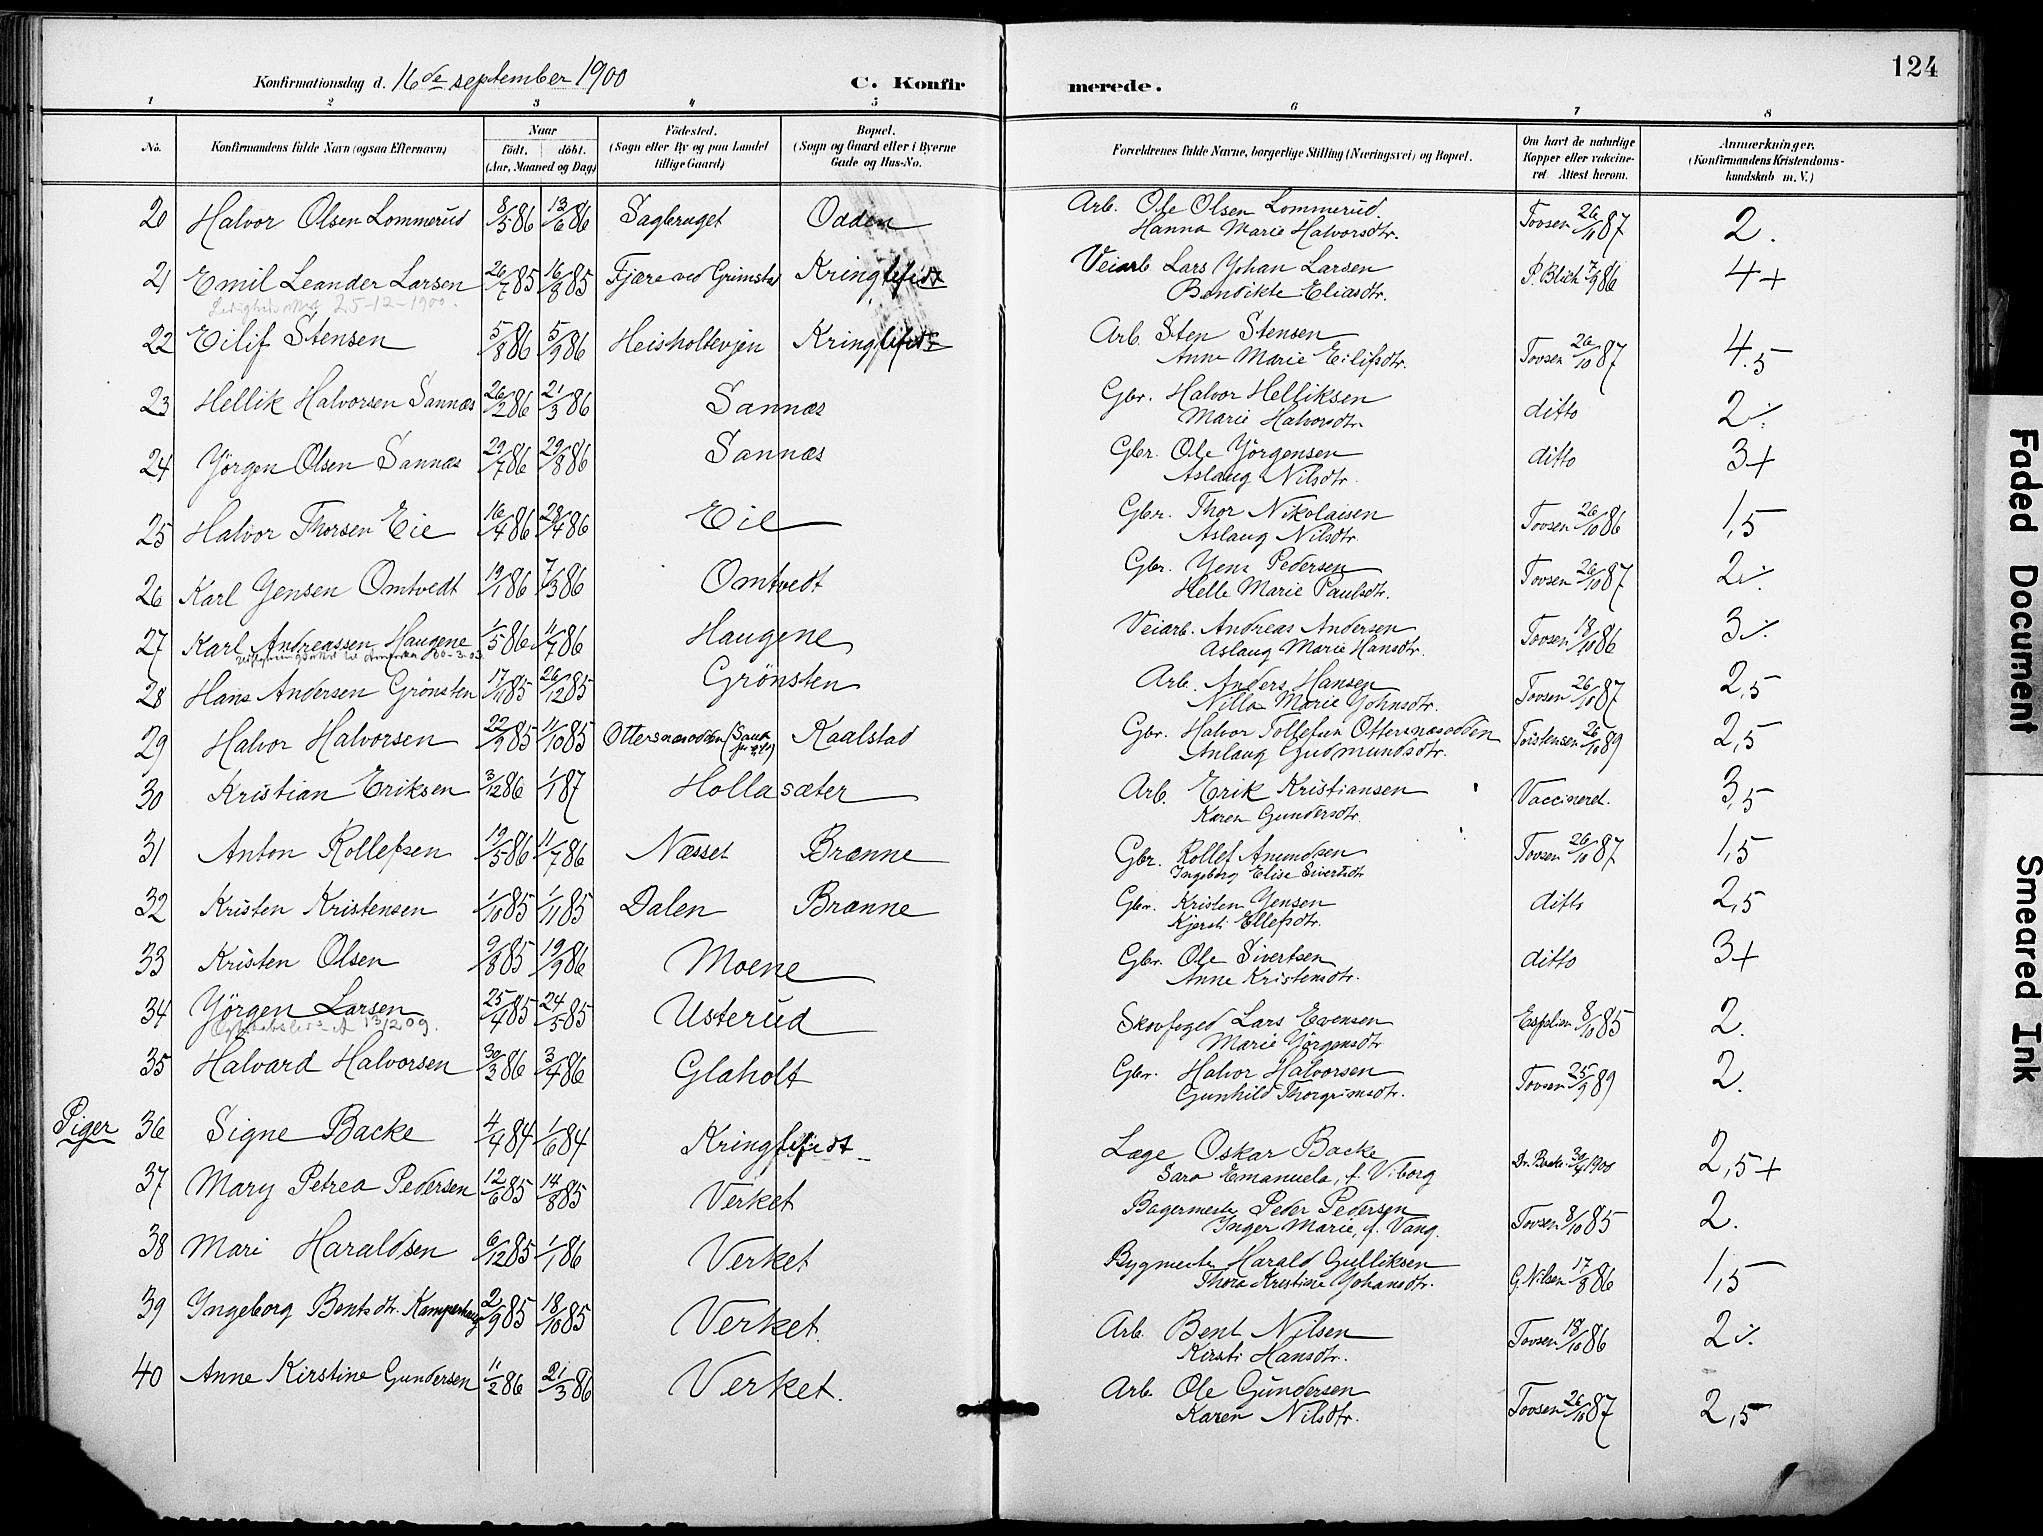 124
Konfirmationsdag d. 16de september 1900 C. Konfirmerede.
1 2 3 4 5 6 7 8
No. Konfirmandens fulde Navn (ogsaa Efternavn) Naar født. døbt. (Aar, Maaned og Dag) Fødested. (Sogn eller By og paa Landet tillige Gaard) Bopæl. (Sogn og Gaard eller i Byerne Gade og Hus-No. Forældrenes fulde Navne, borgerlige Stilling (Næringsvei) og Bopæl. Om havt de naturlige Kopper eller vaccineret. Attest herom. Anmærkninger. (Konfirmandens Kristendomskundskab m. V.)
20 Halvor Olsen Lommerud 8/5 86 13/6 86 Sagbruget Odden Arb. Ole Olsen Lommerud. Tovsen 26/10 87 2.
Hanna Marie Halvorsdtr.
21 Emil Leander Larsen 26/7 85 16/8 85 Fjære ved Grimstad Kringlefidt Veiarb. Lars Johan Larsen P. Blich 7/9 86 4+
25-12-1900. Bendikte Eliasdtr.
22 Eilif Stensen 5/8 86 5/9 86 Heisholtevjen Kringlefidt Arb. Sten Stensen Tovsen 26/10 87 4.5
Anne Marie Eilifsdtr.
23 Hellik Halvorsen Sannæs 26/2 86 21/3 86 Sannæs Gbr. Halvor Helliksen ditto 2 ./.
Marie Halvorsdtr.
24 Jörgen Olsen Sannæs 29/7 86 29/8 86 Sannæs Gbr. Ole Jörgensen ditto 3+
Aslaug Nilsdtr.
25 Halvor Thorsen Eie 16/4 86 28/4 86 Eie Gbr. Thor Nikolaisen Tovsen 26/10 86 1,5
Aslaug Nilsdtr.
26 Karl Jensen Omtvedt 19/1 86 7/3 86 Omtvedt Gbr. Jens Pedersen Tovsen 26/10 87 2 ./.
Helle Marie Paulsdtr.
27 Karl Andreassen Haugene 1/5 86 11/7 86 Haugene Veiarb. Andreas Andersen Tovsen 18/10 86 3 ./.
Aslaug Marie Hansdtr.
28 Hans Andersen Grönsten 17/11 85 26/12 85 Grönsten Arb. Anders Hansen Tovsen 26/10 87 2,5
Nilla Marie Johnsdtr.
29 Halvor Halvorsen 22/9 85 11/10 85 Ottersnæsodden Kaalstad Gbr. Halvor Tollefsen Ottersnæsodden Torstensen 26/10 89 2,5
Anlaug Gudmundsdtr.
30 Kristian Eriksen 3/12 86 1/1 87 Hollasæter Arb. Erik Kristiansen Vaccineret. 3,5
Karen Gundersdtr.
31 Anton Rollefsen 19/5 86 11/7 86 Næsset Brænne Gbr. Rollef Amundsen Tovsen 26/10 87 1,5
Ingeborg Elise Sivertsdtr
32 Kristen Kristensen 1/10 85 1/11 85 Dalen Brænne Gbr. Kristen Jensen ditto 2,5
Kjersti Ellefsdtr.
33 Kristen Olsen 9/8 85 19/9 86 Moene Gbr. Ole Sivertsen ditto 3+
Anne Kristensdtr.
34 Jörgen Larsen 25/4 85 24/5 85 Usterud Skovfoged Lars Evensen Espelien 8/10 85 2.
Marie Jörgensdtr
35 Halvard Halvorsen 30/3 86 3/4 86 Glaholt Gbr. Halvor Halvorsen Tovsen 25/9 89 2.
Gunhild Thorgrimsdtr.
Piger 36 Signe Backe 4/4 84 1/6 84 Kringlefidt Læge Oskar Backe Dr. Backe 30/4 1900 2,5+
Sara Emanuela, f. Viborg
37 Mary Petrea Pedersen 12/6 85 14/8 85 Verket Bagermester Peder Pedersen Tovsen 8/10 85 2.
Inger Marie, f. Vang.
38 Mari Haraldsen 6/12 85 1/1 86 Verket Bygmester Harald Gulliksen G. Nilsen 17/8 86 1,5
Thora Kristine Johansdtr.
39 Ingeborg Bentsdtr. Kamperhaug 2/9 85 18/10 85 Verket. Arb. Bent Nilsen Tovsen 18/10 86 2 ./.
Kirsti Hansdtr.
40 Anne Kirstine Gundersen 11/2 86 21/3 86 Verket. Arb. Ole Gundersen Tovsen 26/10 87 2,5
Karen Nilsdtr.
Faded Document
Smeared Ink